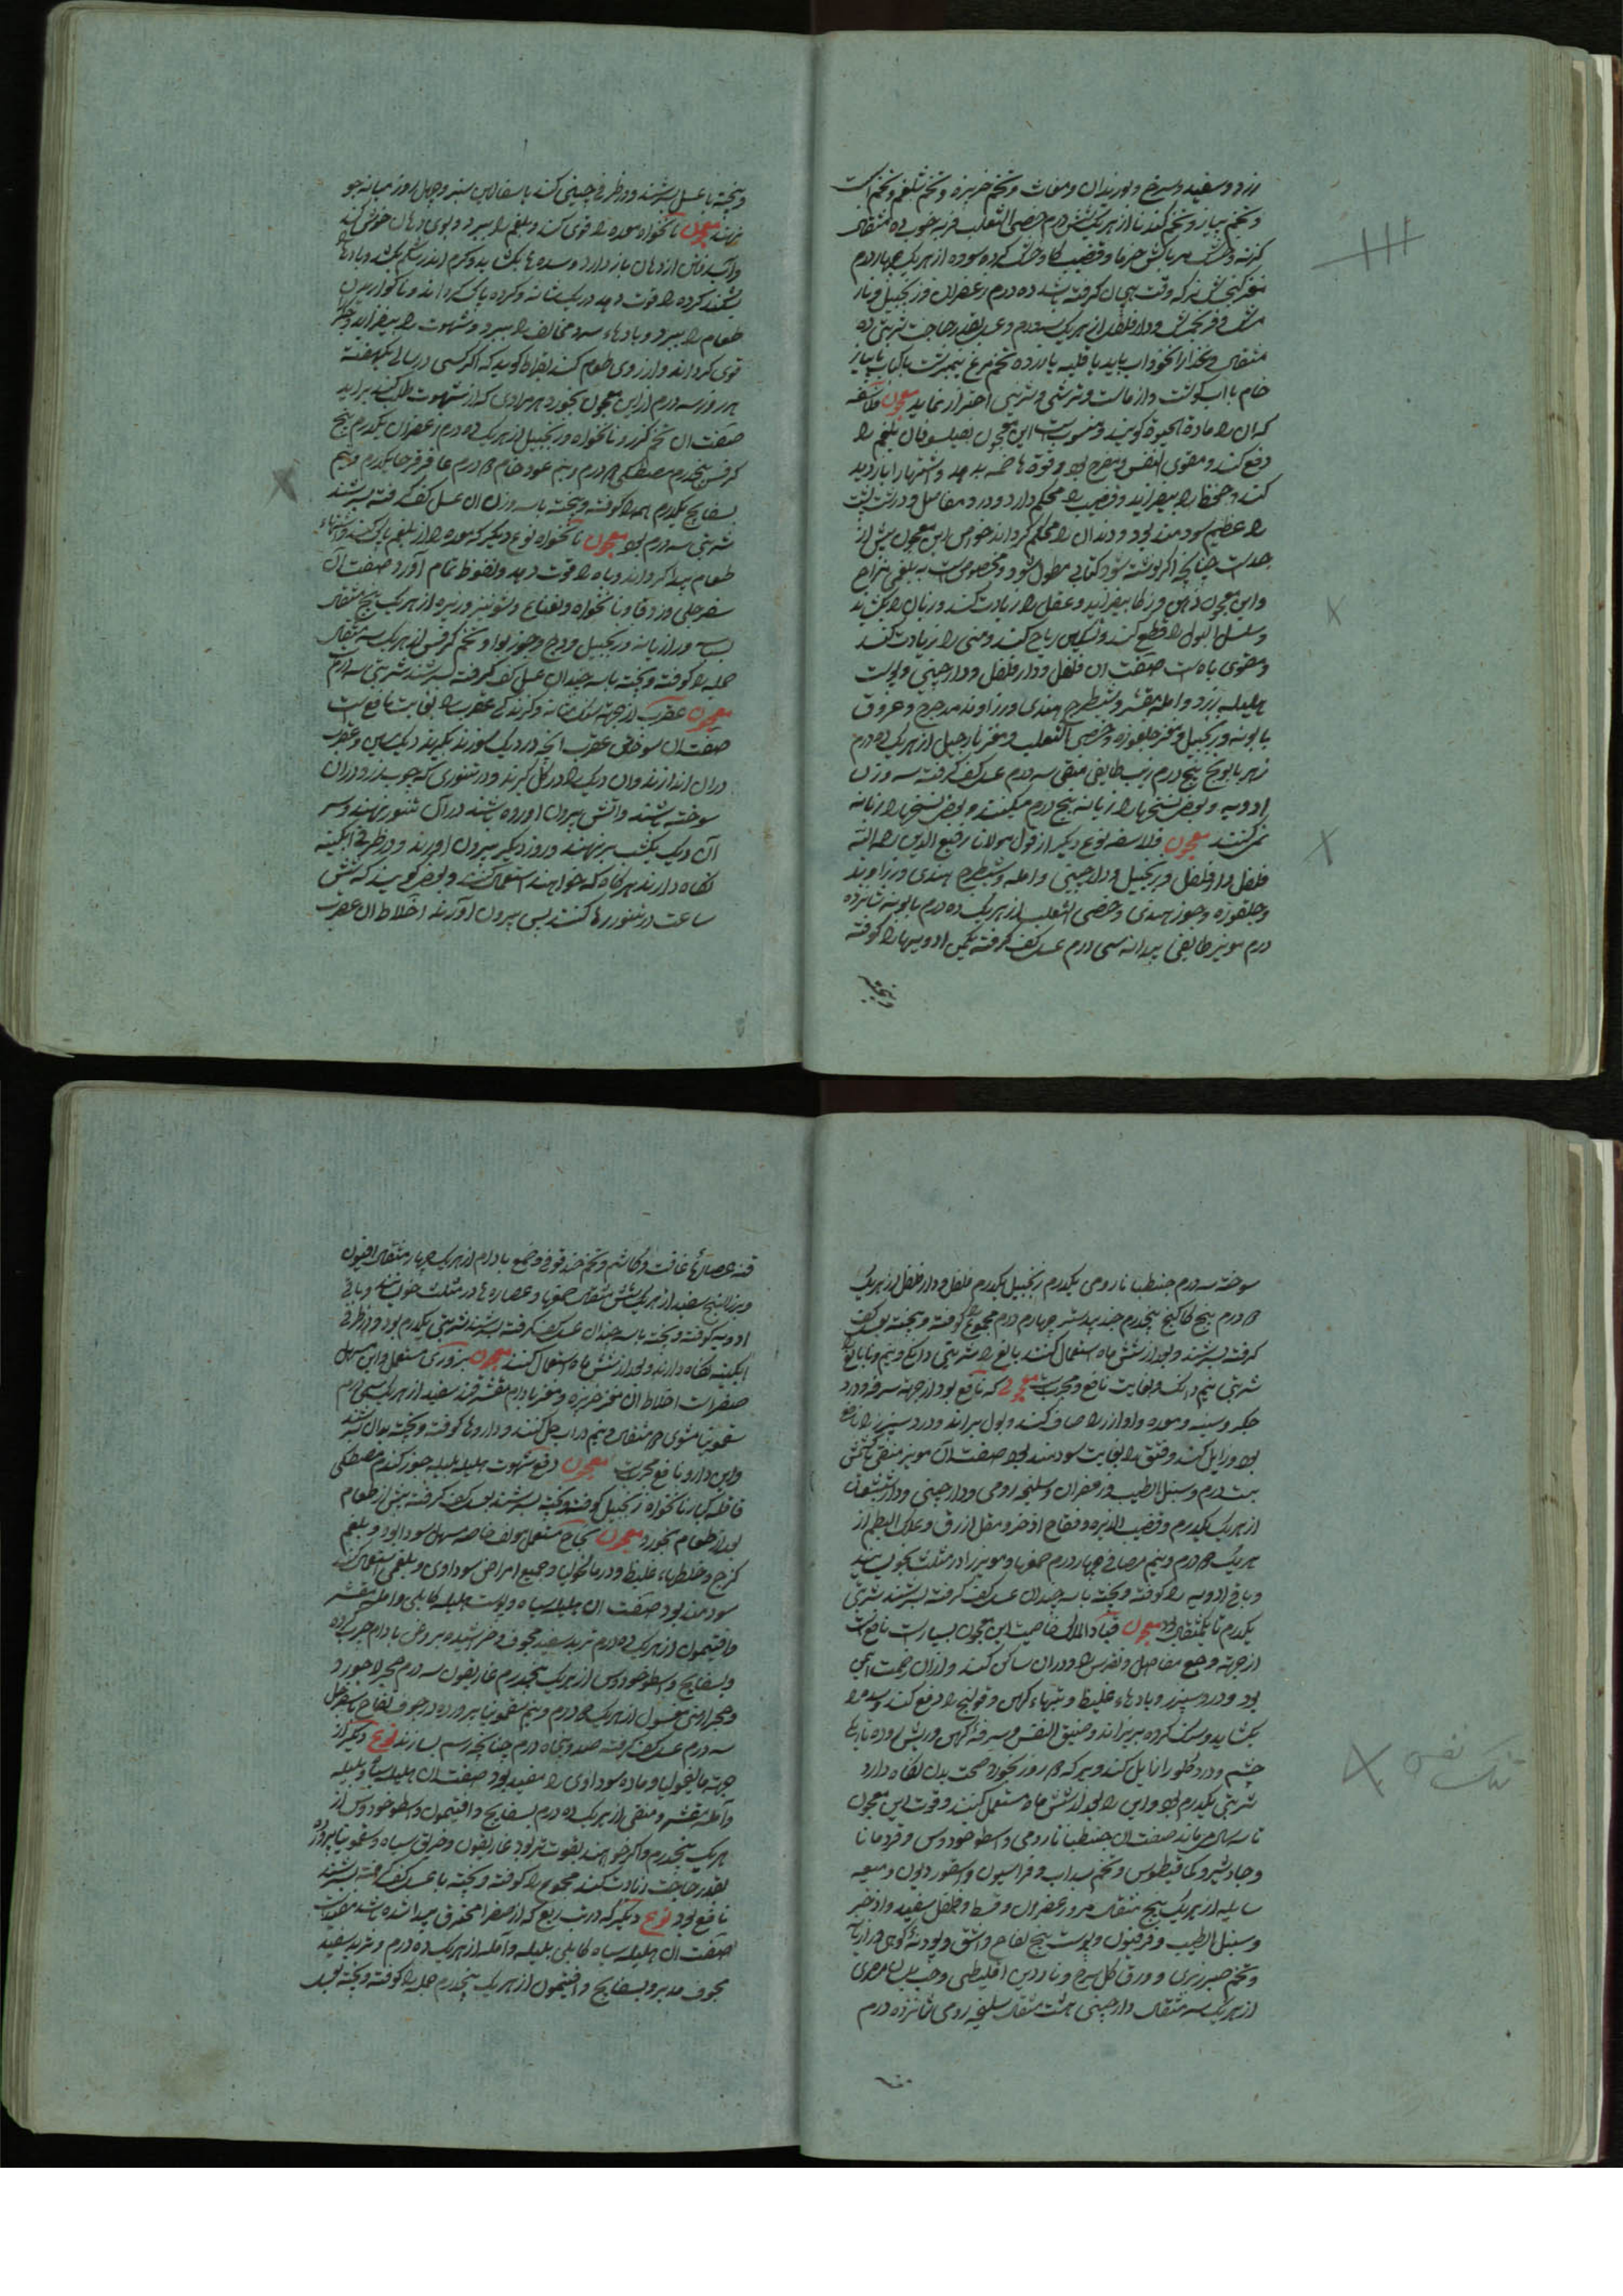 زرد و سفید و سرخ و بوزیدان و مغاث و تخم خربزه و تخم شلغم و تخم است
و تخم پیاز و تخم گندنا از هریک شش درم خصی الثعلب فربه خوب ده مثقال
کوفته سوده از هریک چهار درم
مغز گنجشک نر که وقت هیجان گرفته باشند ده درم زعفران و زنجبیل و نار
مشک و دارفلفل از هریک سه درم و عسل بقدر حاجت شربتی ده
مثقال و غذا نخوداب باید با قلیه یا زرده تخم مرغ نیمبرشت یا کباب با پیاز
خام یا آب گوشت و از ماست و ترشی و شیرینی احتراز نماید معجون فلاسفه
که آن را مادة الحیوة گویند و منسوبست این معجون بفیلسوفان بلغم را
دفع کند و مقوی النفس و مفرح بود و قوة هاضمه بدهد و اشتها را بازدید
کند و حفظ را بیفزاید و قضیب را محکم دارد و درد مفاصل و درد پشت
را عظیم سودمند بود و دندان را محکم گرداند خواص این معجون بیش از
حدست چنانچه اگر نوشته شود کتابی مطول شود و مخصوصست به بلغمی مزاج
و این معجون ذهن و ذکا بیفزاید و عقل را زیادت کند و زبان را بگشاید
و سلسل البول را قطع کند و تسکین ریاح کند و منی را زیادت کند
و مقوی باه است صفت آن فلفل و دارفلفل و دارچینی و پوست
هلیله زرد و آمله مقشر و شیطرج هندی و زراوند مدحرج و عروق
بابونه و زنجبیل و مغز جلغوزه و خصی الثعلب و مغز نارجیل از هریک ده درم
زهر بابونج پنج درم زبیب طایفی منقی سه درم عسل کف گرفته سه وزن
ادویه و بعضی نسخها رازیانه پنج درم میکنند و بعضی نسخها رازیانه
نمی کنند معجون فلاسفه نوع دیگر از قول مولانا رفیع الدین رحمه الله
فلفل دارفلفل و زنجبیل و دارچینی و آمله و شیطرج هندی و زراوند
و جلغوزه و جوز هندی و خصی الثعلب از هریک ده درم بابونه شانزده
درم مویز طایفی بیدانه سی درم عسل کف گرفته یکمن ادویها را کوفته
و بیخته
و بیخته با عسل بسرشند و در ظرفی چینی کنند یا سفالین سبز و چهل روز میانه جو
نهند معجون نانخواه معده را قوی کند و بلغم را ببرد و بوی دهان خوش کند
و آب رفتن از دهان باز دارد و سده ها بگشاید و کرم اندر شکم بکشد و بادها
بشکند گرده را قوت دهد و ریگ مثانه و گرده پاک گرداند و ناگواریدن
طعام را ببرد و بادهاء سرد مخالف را ببرد و شهوت را بیفزاید و جگر
قوی گرداند و آرزوی طعام کند بقراط گوید که اگر کسی در سالی یکهفته
هر روز سه درم از این معجون بخورد هر مرادی که از شهوت طلب کند برآید
صفت آن تخم گزر و نانخواه و زنجبیل از هریک ده درم زعفران یکدرم بیخ
کرفس پنجدرم مصطکی درم و نیم عود خام درم عاقرقرحا یکدرم و نیم
بسفایج یکدرم همه را کوفته و بیخته با سه وزن آن عسل کف گرفته بسرشند
شربتی سه درم بود معجون نانخواه نوع دیگر که معده را از بلغم پاک کند و اشتهاء
طعام پیدا گرداند و باه را قوت دهد و نعوظ تمام آورد صفت آن
سفرجلی و زوفا و نانخواه و نعناع و شونیز و زیره از هریک پنج مثقال
بسباسه و رازیانه و زنجبیل و وج و جوز بوا و تخم کرفس از هریک سه مثقال
جمله را کوفته و بیخته با سه چندان عسل کف گرفته بسرشند شربتی سه درم
معجون عقرب از جهة سنگ مثانه و گزندگی عقرب را بغایت نافع است
صفت آن سوختن عقرب آنچه در دیگ سوزند بگیرند دیک مسین و عقرب
در آن اندازند و آن دیگ را در گل گیرند و در تنوری که چوب رز در آن
سوخته باشند و آتش بیرون آورده باشند در آن تنور نهند و سر
آن دیگ یکشب برنهند و روز دیگر بیرون آورند و در ظرفی آبگینه
نگاه دارند هرگاه که خواهند استعمال کنند و بعضی گویند که شش
ساعت در تنور رها کنند پس بیرون آورند اخلاط آن عقرب
سوخته سه درم جنطیانا رومی یکدرم زنجبیل یکدرم فلفل و دارفلفل از هریک
درم بیخ کاکنج پنجدرم جندبیدستر چهارم درم مجموع را کوفته و بیخته بعسل کف
گرفته بسرشند و بعد از شش ماه استعمال کنند بالغ را شربتی دانگ و نیم و نابالغ را
شربتی نیم دانگ و بغایت نافع و مجربست معجونی که نافع بود از جهة سرفه و درد
جگر و سینه و معده و آواز را صاف کند و بول براند و درد سپرز را نافع
بود و زایل کند و فتق را بغایت سودمند بود صفت آن مویز منقی شش
بیست درم و سنبل الطیب و زعفران و سلیخه رومی و دارچینی و دارشیشعان
از هریک یکدرم و قصب الذریره و فقاح اذخر و مقل ازرق و علک البطم از
هریک درم و نیم مر صافی چهار درم صمغها و مویز را در مثلث بجوشانند
و باقی ادویه را کوفته و بیخته با سه چندان عسل کف گرفته بسرشند شربتی
یکدرم تا یکمثقال بود معجون قباد الملک خاصیت این معجون بسیارست نافعست
از جهة وجع مفاصل و نقرس و دوران ساکن کند و از آن رحمت ایمن
بود و درد سپرز و بادهاء غلیظ و تبهاء کهن و قولنج را دفع کند و سده را
بگشاید و سنگ گرده بریزاند و ضیق النفس و سرفهٔ کهن و ریش روده تاریکی
چشم و درد گلو را زایل کند و هرکه روز بخورد صحت بدن نگاه دارد
شربتی یکدرم بود و این را بعد از شش ماه مستعمل کنند و قوت این معجون
تا سه سال می ماند صفت آن جنطیانا رومی و اسطوخودوس و قردمانا
و جاوشیر و کمافیطوس و تخم سداب و فراسیون و اسقوردیون و میعه
سایله از هریک پنج مثقال مر و زعفران و قسط و فلفل سفید و اذخر
و سنبل الطیب و فرفیون و پوست بیخ لفاح و اشق و پودنهٔ کوهی و رازیانه
و تخم جزر بری و ورق گل سرخ و ناردین اقلیطی و حب بلسان مصری
از هریک سه مثقال دارچینی هشت مثقال سلیخه رومی شانزده درم
تنگ نفس
قنه عصارهٔ غافت و کاشم و تخم حندقوقی و صمغ بادام از هریک چهار مثقال افیون
و بزرالبنج سفید از هریک شش مثقال صمغها و عصاره ها در مثلث خوب بسایند و باقی
ادویه کوفته و بیخته با سه چندان عسل کف گرفته بسرشند شربتی یکدرم بود و در ظرفی
آبگینه نگاه دارند و بعد از شش ماه استعمال کنند معجون بزوری مستعمل و این مسهل
صفراست اخلاط آن مغز خربزه و مغز بادام مقشر قند سفید از هریک سی درم
سقمونیا مشوی مثقال و نیم در آب حل کنند و داروها کوفته و بیخته بدان بسرشند
و این دارو نافع مجربست معجون دفع شهوت هلیله بلیله جوز گندم مصطکی
قاقله کبار نانخواه زنجبیل کوفته و بیخته بسرشند بعسل کف گرفته پیش از طعام
بعد از طعام بخورد معجون نجاح مستعمل مولف خاصه مسهل سودا بود و بلغم
لزج و خلطهاء غلیظ و در مالیخولیا و جمیع امراض سوداوی و بلغمی استعمال کنند
سودمند بود صفت آن هلیله سیاه و پوست هلیله کابلی و آمله مقشر
و افتیمون از هریک ده درم تربد سفید مجوف خراشیده بروغن بادام چرب کرده
و بسفایج و اسطوخودوس از هریک پنجدرم غاریقون سه درم حجر لاجورد
و حجر ارمنی مغسول از هریک درم و نیم سقمونیا پرورده در جوف تفاح یا سفرجل
سه درم عسل کف گرفته صد و پنجاه درم چنانچه رسم بسازند نوع دیگر از
جهة مالیخولیا و ماده سوداوی را مفید بود صفت آن هلیله سیاه و بلیله
و آمله مقشر و منقی از هریک ده درم بسفایج و افتیمون و اسطوخودوس از
هریک پنجدرم و اگر خواهند بقوت تر بود غاریقون و خربق سیاه و سقمونیا پرورده
بقدر حاجت زیادت کنند مجموع را کوفته و بیخته با عسل کف گرفته بسرشند
نافع بود نوع دیگر که در تب ربع که از صفرا محترق پیدا شده باشد مفیدست
صفت آن هلیله سیاه کابلی بلیله و آمله از هریک ده درم و تربد سفید
مجوف مدبر و بسفایج و افتیمون از هریک پنجدرم جمله را کوفته و بیخته بعسل